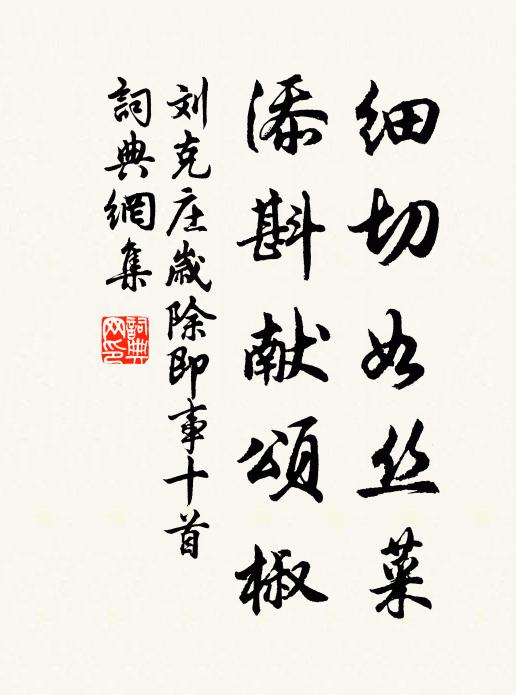 细切如丝菜
添斟献颂椒
刘克庄岁除即事十首
詞典網集
詞典网印